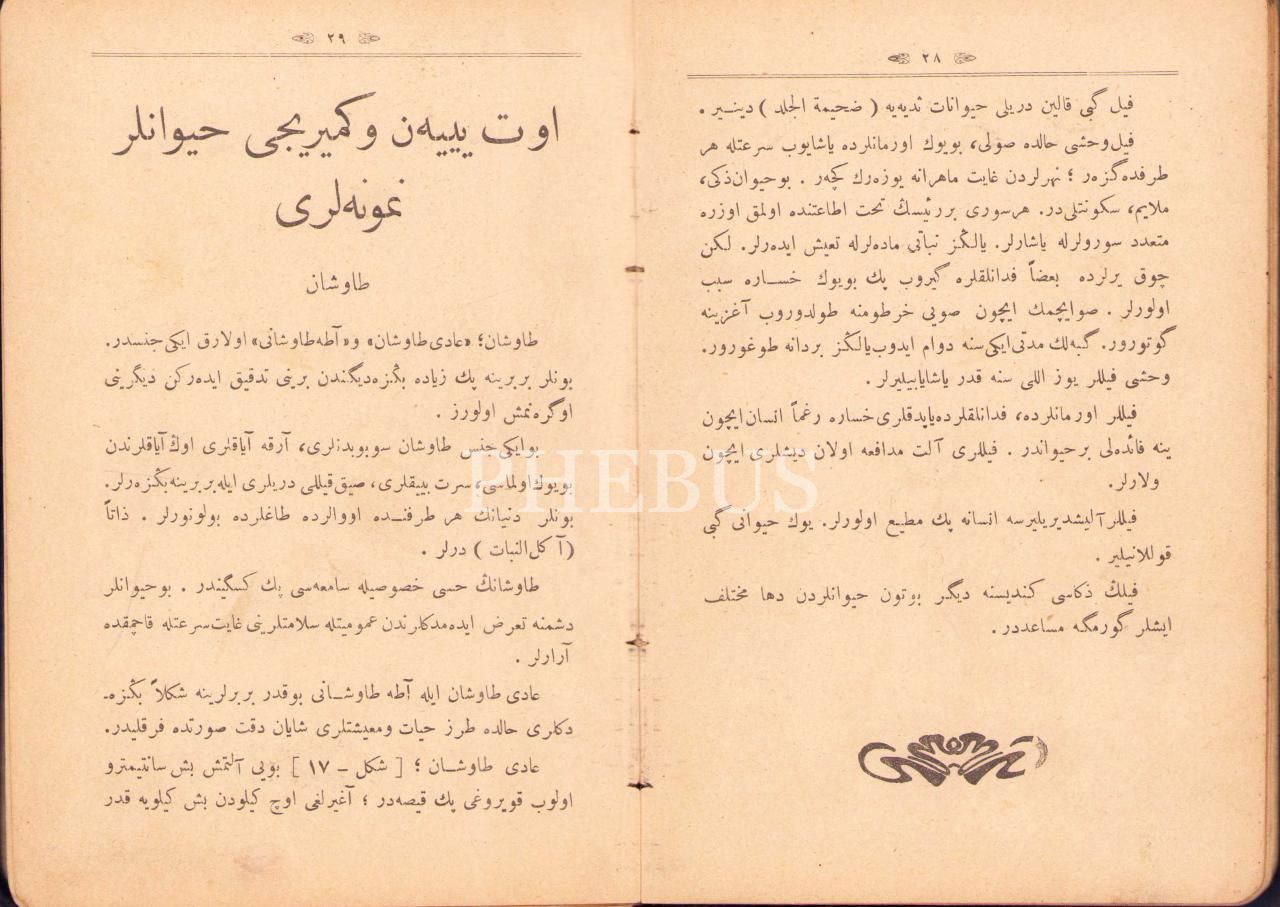 ٢٨
فيل گبی قالين دريلی حيوانات ثدييه‌يه ( ضخيمة الجلد ) دينــير .
فيل وحشی حالده صولی، بويوك اورمانلرده ياشايوب سرعتله هر
طرفده گزه‌ر ؛ نهرلردن غايت ماهرانه يوزه‌رك كچه‌ر . بوحيوان ذكی،
ملايم، سكونتلی‌در. هرسوری بررئيسڭ تحت اطاعتنده اولمق اوزره
متعدد سورولرله ياشارلر. يالڭز نباتی ماده‌لرله تعيش ايده‌رلر. لكن
چوق يرلرده بعضاً فدانلقلره گيروب پك بويوك خســاره سبب
اولورلر . صوايچمك ايچون صويی خرطومنه طولدوروب آغزينه
گوتورور. گبه‌لك مدتی ايكی سنه دوام ايدوب يالڭز بردانه طوغورور.
وحشی فيللر يوز اللی سنه قدر ياشايابيليرلر .
فيللر اورمانلرده، فدانلقلرده‌ياپدقلری خساره رغماً انسان ايچون
ينه فائده‌لی برحيواندر . فيللری آلت مدافعه اولان ديشلری ايچون
ولارلر.
فيللر آليشديريليرسه انسانه پك مطيع اولورلر. يوك حيوانی گبی
قوللانيلير .
فيلڭ ذكاسی كنديسنه ديگر بوتون حيوانلردن دها مختلف
ايشلر گورمگه مساعددر .
٢٩
اوت يييه‌ن وكميريجی حيوانلر
نمونه‌لری
طاوشان
طاوشان؛ «عادی طاوشان» و «آطه طاوشانی» اولارق ايكی جنسدر.
بونلر بربرينه پك زياده بڭزه‌ديگندن برينی تدقيق ايده‌ركن ديگرينی
اوگره‌نمش اولورز .
بوايكی جنس طاوشان سوبوبدنلری، آرقه آياقلری اوڭ آياقلرندن
بويوك اولماسی، سرت بييقلری، صيق قيللی دريلری ايله بربرينه بڭزه‌رلر.
بونلر دنيانك هر طرفنــده اووالرده طاغلرده بولونورلر . ذاتاً
(آكل النبات ) درلر .
طاوشانڭ حسی خصوصيله سامعه‌سی پك كسگيندر . بوحيوانلر
دشمنه تعرض ايده‌مدكلرندن عموميتله سلامتلرينی غايت سرعتله قاچمقده
آرارلر .
عادی طاوشان ايله آطه طاوشــانی بوقدر بربرلرينه شكلاً بڭزه-
دكلری حالده طرز حيات ومعيشتلری شايان دقت صورتده فرقليدر.
عادی طاوشــان ؛ [ شكل – ١٧ ] بويی آلتمش بش سانتيمترو
اولوب قويروغی پك قيصه‌در ؛ آغيرلغی اوچ كيلودن بش كيلويه قدر
PHEBUS